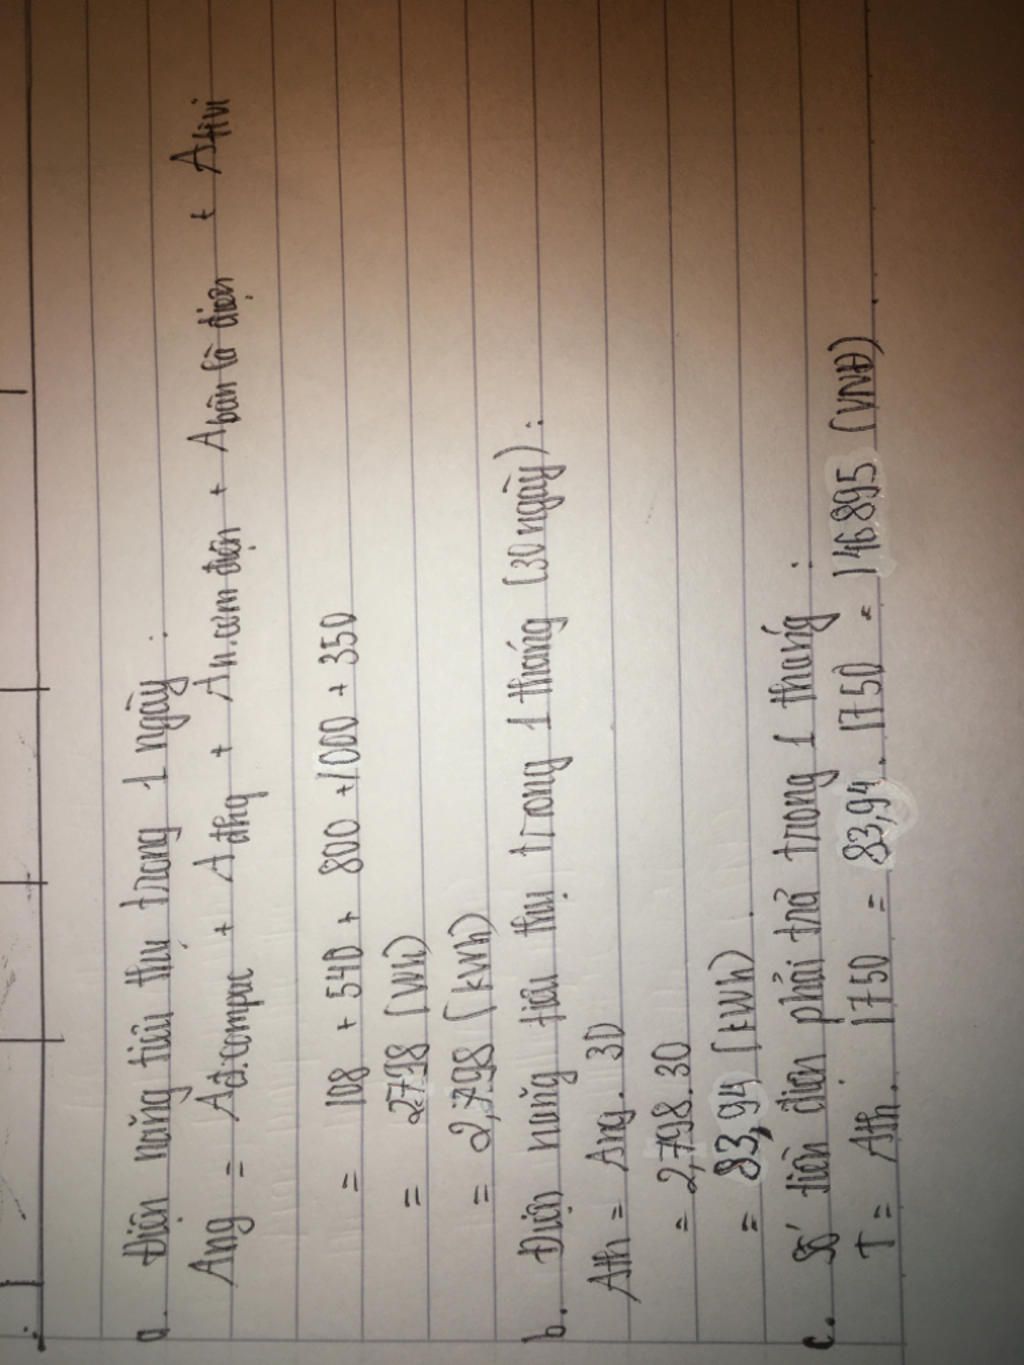 a. Điện năng tiêu thụ trong 1 ngày :
Ang = Ađ.compac + Ađhq + An.cơm điện + Abàn là điện + Ativi
= 108 + 540 + 800 + 1000 + 350
= 2798 (Wh)
= 2,798 (kWh)
b. Điện năng tiêu thụ trong 1 tháng (30 ngày) :
Ath = Ang . 30
= 2,798 . 30
= 83,94 (kWh) .
c. Số tiền điện phải trả trong 1 tháng :
T = Ath . 1750 = 83,94 . 1750 = 146895 (VNĐ) .